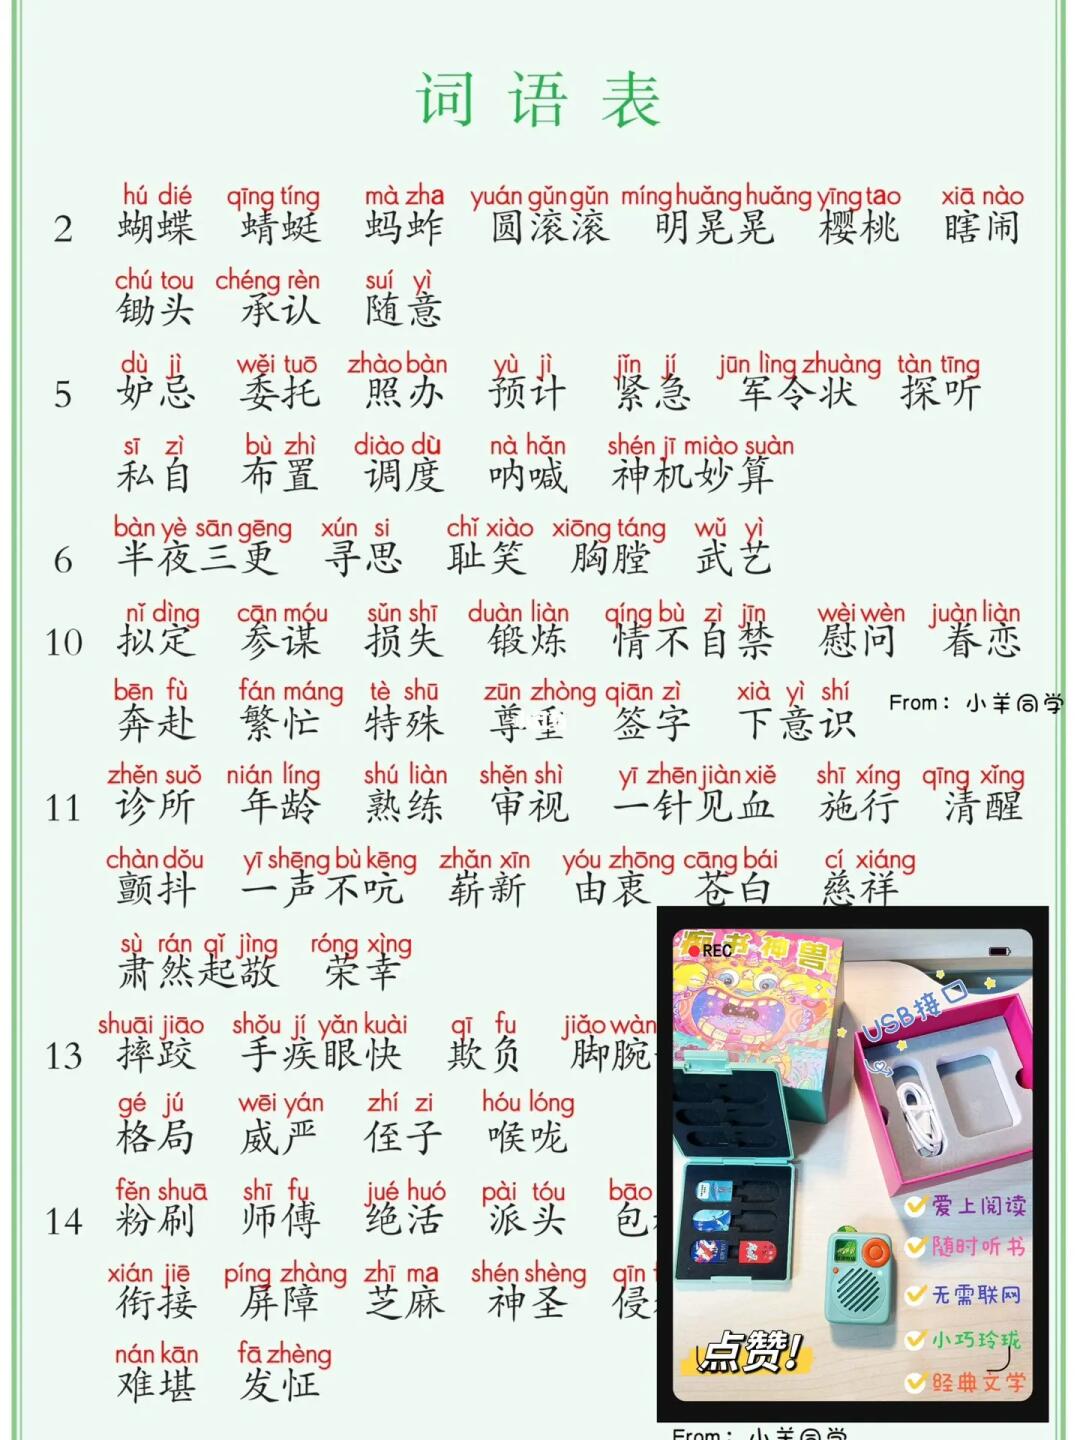 词语表
hú dié qīng tíng mà zha yuán gǔn gǔn míng huǎng huǎng yīng tao xiā nào
2 蝴蝶 蜻蜓 蚂蚱 圆滚滚 明晃晃 樱桃 瞎闹
chú tou chéng rèn suí yì
锄头 承认 随意
dù jì wěi tuō zhào bàn yù jì jǐn jí jūn lìng zhuàng tàn tīng
5 妒忌 委托 照办 预计 紧急 军令状 探听
sī zì bù zhì diào dù nà hǎn shén jī miào suàn
私自 布置 调度 呐喊 神机妙算
bàn yè sān gēng xún si chǐ xiào xiōng táng wǔ yì
6 半夜三更 寻思 耻笑 胸膛 武艺
nǐ dìng cān móu sǔn shī duàn liàn qíng bù zì jīn wèi wèn juàn liàn
10 拟定 参谋 损失 锻炼 情不自禁 慰问 眷恋
bēn fù fán máng tè shū zūn zhòng qiān zì xià yì shí
奔赴 繁忙 特殊 尊重 签字 下意识
From：小羊同学
zhěn suǒ nián líng shú liàn shěn shì yī zhēn jiàn xiě shī xíng qīng xǐng
11 诊所 年龄 熟练 审视 一针见血 施行 清醒
chàn dǒu yī shēng bù kēng zhǎn xīn yóu zhōng cāng bái cí xiáng
颤抖 一声不吭 崭新 由衷 苍白 慈祥
sù rán qǐ jìng róng xìng
肃然起敬 荣幸
shuāi jiāo shǒu jí yǎn kuài qī fu jiǎo wàn
13 摔跤 手疾眼快 欺负 脚腕
gé jú wēi yán zhí zi hóu lóng
格局 威严 侄子 喉咙
fěn shuā shī fu jué huó pài tóu bāo
14 粉刷 师傅 绝活 派头 包
xián jiē píng zhàng zhī ma shén shèng qīn
衔接 屏障 芝麻 神圣 侵
nán kān fā zhèng
难堪 发怔
REC
痴书神兽
USB接口
爱上阅读
随时听书
无需联网
小巧玲珑
经典文学
点赞!
From：小羊同学